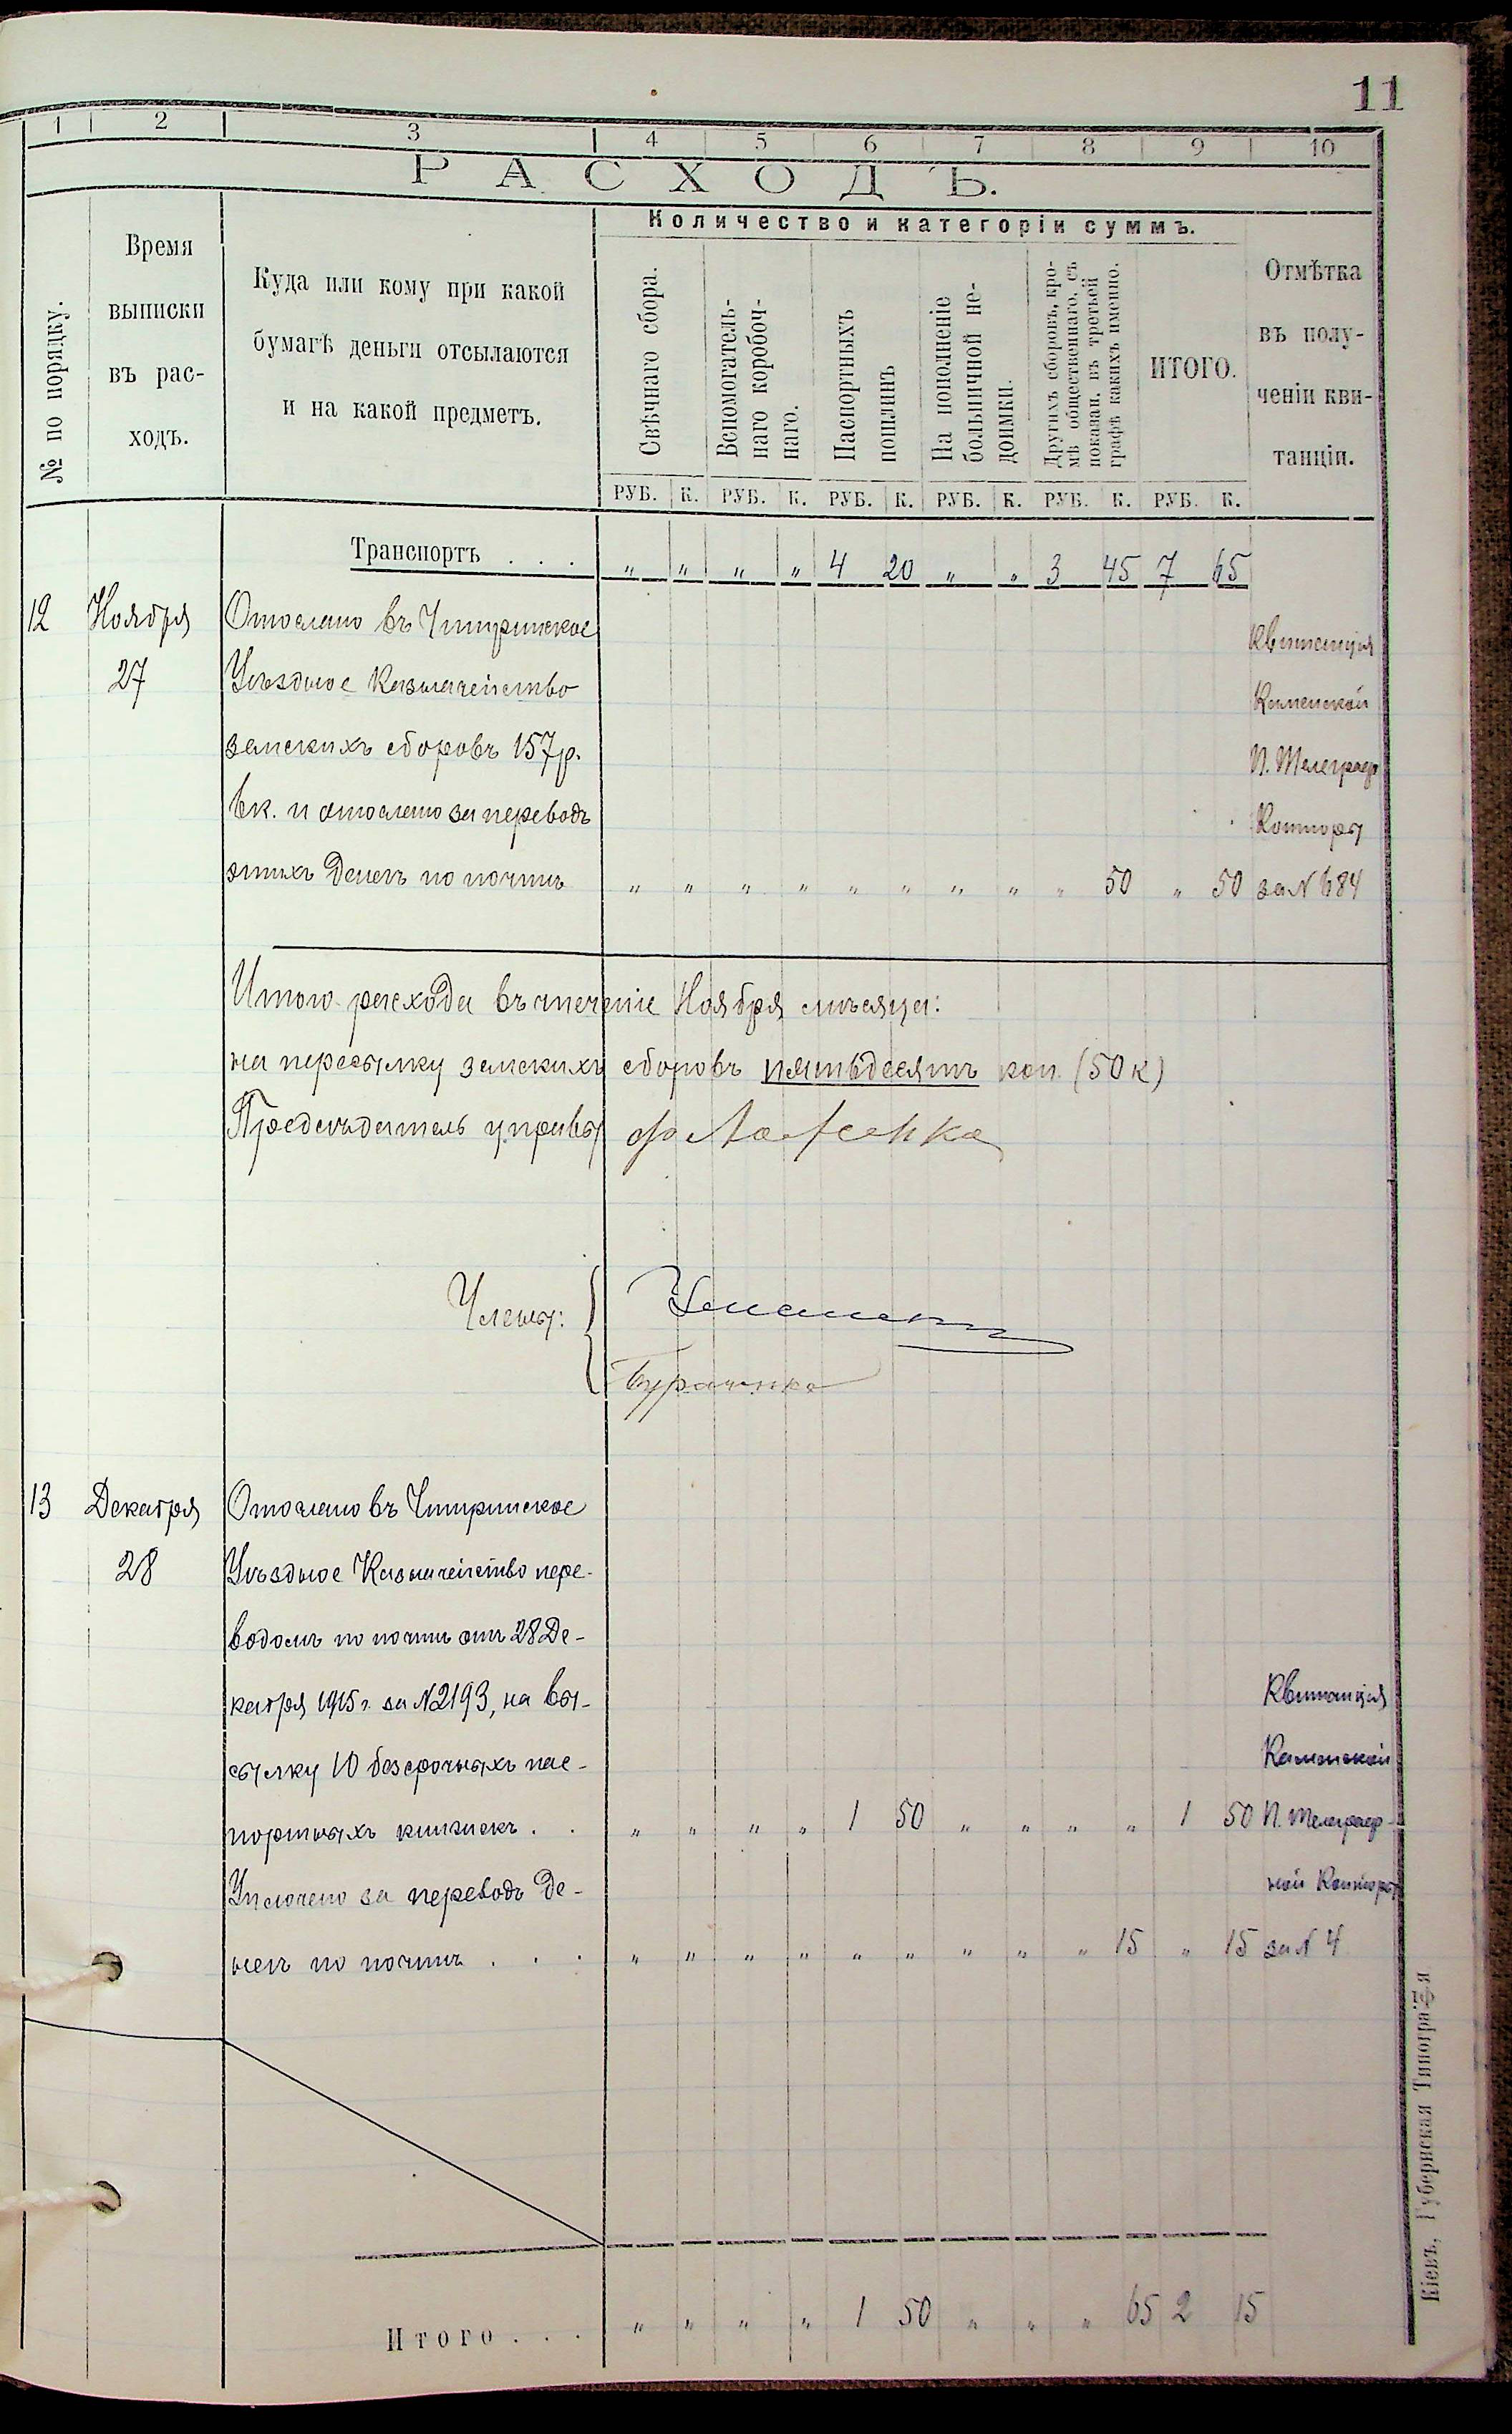 11
1 2 3 4 5 6 7 8 9 10
РАСХОДЪ.
№ по порядку.
Время
выписки
въ рас-
ходъ.
Куда или кому при какой
бумагѣ деньги отсылаются
и на какой предметъ.
Количество и категоріи суммъ.
Свѣчнаго сбора.
Вспомогатель-
наго коробоч-
наго.
Паспортныхъ
пошлинъ
На пополненіе
больничной не-
доимки.
Другихъ сборовъ, кро-
мѣ общественнаго, съ
показан. въ третьей
графѣ какихъ именно.
ИТОГО.
Отмѣтка
въ полу-
ченіи кви-
танціи.
РУБ. К. РУБ. К. РУБ. К. РУБ. К. РУБ. К. РУБ. К.
Транспортъ . . . " " " " 4 20 " " 3 45 7 65
12 Ноября Отослано въ Чигиринское
27 Уѣздное Казначейство
земскихъ сборовъ 157р.
6к. и отослано за переводъ
этихъ денегъ по почтѣ " " " " " " " " " 50 " 50
Квитанція
Каменской
П. Телеграф
Конторы
за N 684
Итого расхода въ теченіе Ноября мѣсяца:
на пересылку земскихъ сборовъ пятьдесятъ коп. (50к)
Предсѣдатель управы
Члены:
13 Декабря Отослано въ Чигиринское
28 Уѣздное Казначейство пере-
водомъ по почтѣ отъ 28 Де-
кабря 1915 г. за N2193, на вы-
сылку 10 безсрочныхъ пас-
портныхъ книжекъ . . " " " " 1 50 " " " " 1 50
Уплочено за переводъ де-
негъ по почтѣ . . . " " " " " " " " " 15 " 15
Квитанція
Каменской
П. Телеграф-
ной Конторы
за N 4
Итого . . . " " " " 1 50 " " " 65 2 15
Кіевъ, Губернская Типографія